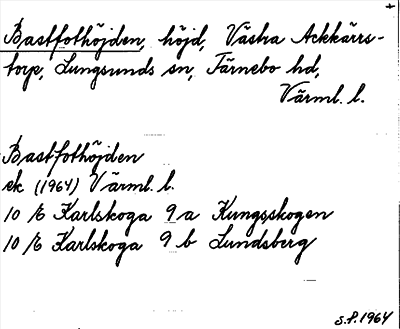 Bastfothöjden, höjd, Västra Ackkärrs-
torp, Lungsunds sn, Färnebo hd,
Värml. l.
Bastfothöjden
ek (1964) Värml. l.
10 E Karlskoga 9 a Kungsskogen
10 E Karlskoga 9 b Lundsberg
S.P. 1964